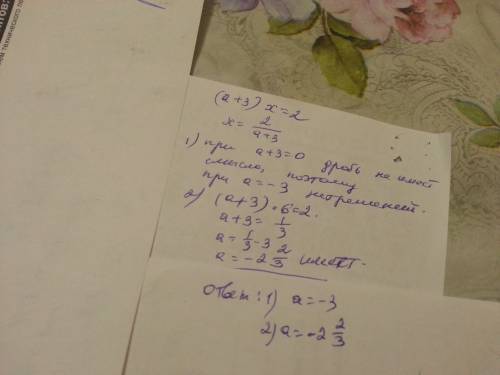 (a+3) x=2
x= 2/(a+3)
1) при a+3=0 дробь не имеет
смысла, поэтому
при a=-3 нет решений.
2) (a+3)·6=2.
a+3= 1/3
a= 1/3-3
a=-2 2/3 имеет.
Ответ: 1) a=-3
2) a=-2 2/3